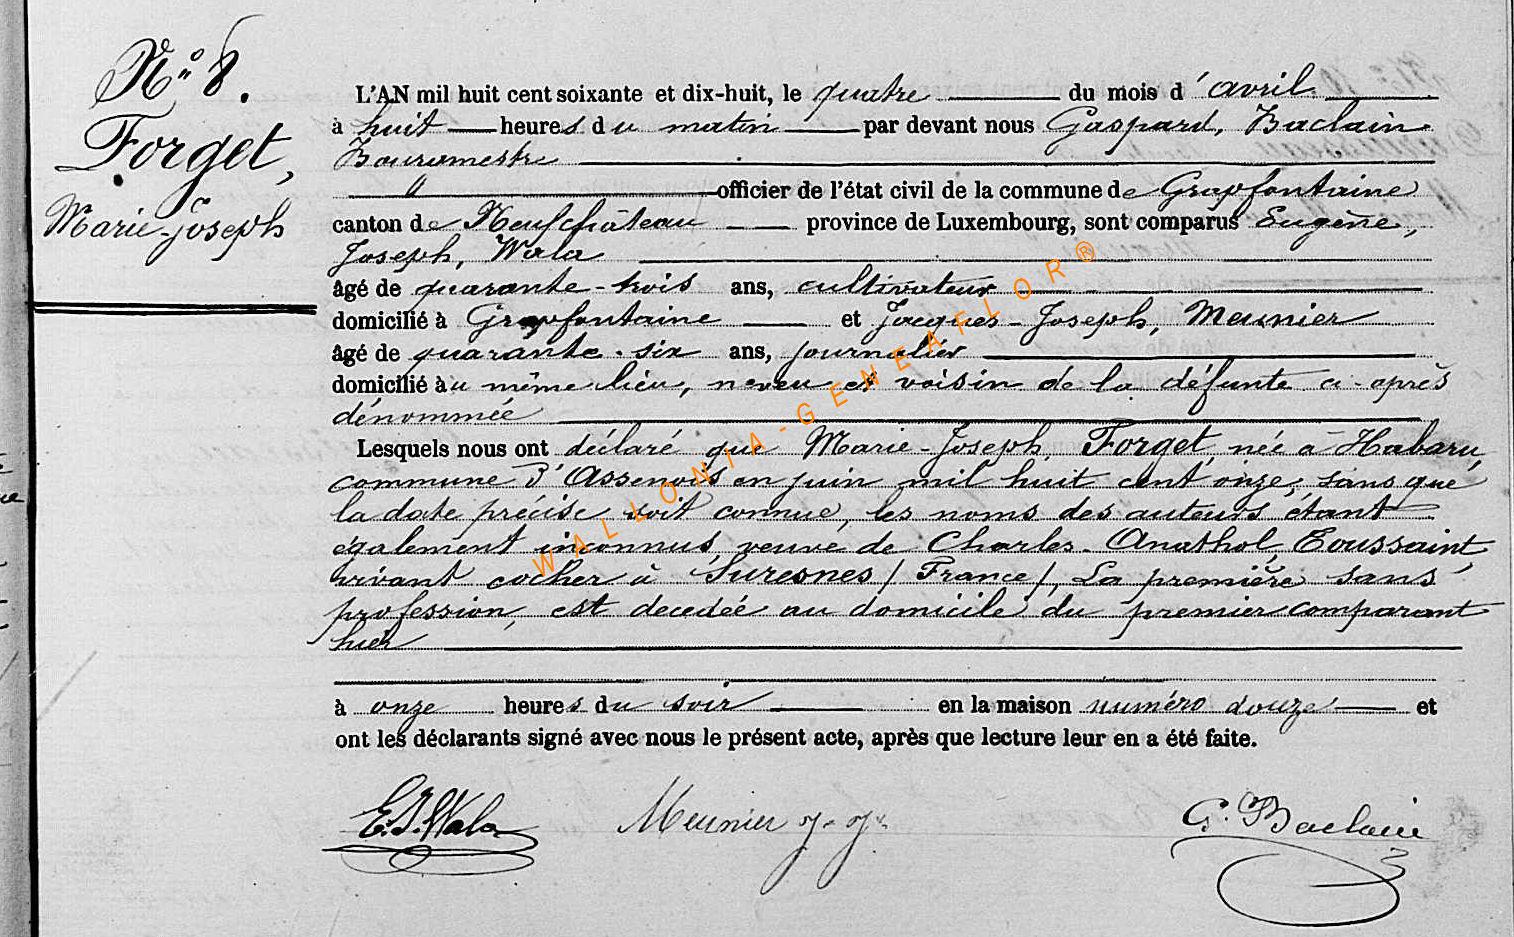 N° 8.
Forget,
Marie-Joseph
L'AN mil huit cent soixante et dix-huit, le quatre du mois d'avril
à huit heures du matin par devant nous Gaspard, Baclain
Bourgmestre
officier de l'état civil de la commune de Grapfontaine
canton de Neufchâteau province de Luxembourg, sont comparus Eugène,
Joseph, Wala
âgé de quarante-trois ans, cultivateur
domicilié à Grapfontaine et Jacques-Joseph, Meunier
âgé de quarante-six ans, journalier
domicilié au même lieu, neveu et voisin de la défunte ci-après
dénommée
Lesquels nous ont déclaré que Marie-Joseph, Forget, née à Habaru,
commune d'Assenois en juin mil huit cent onze, sans que
la date précise soit connue, les noms des auteurs étant
également inconnus, veuve de Charles-Anathol, Toussaint,
vivant cocher à Suresnes / France /, La première sans
profession, est decedée au domicile du premier comparant
hier
à onze heures du soir en la maison numéro douze et
ont les déclarants signé avec nous le présent acte, après que lecture leur en a été faite.
E.J. Wala Meunier j-j. G. Baclain
WALLONIA-GENEAFLOR®